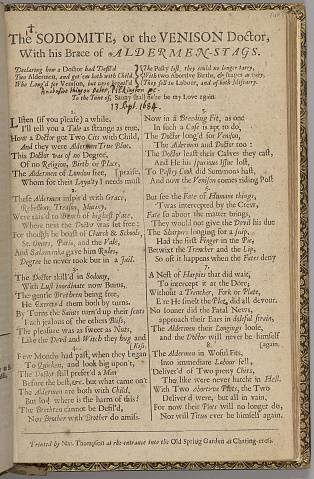 The SODOMITE, or the VENISON Doctor,
With his Brace of ALDERMEN-STAGS.
Declaring how a Doctor had Defil'd
Two Aldermen, and got 'em both with Child,
Who Long'd for Venison, but were beguil'd
The Pasty lost, they could no longer tarry,
With two Abortive Births,
They fell to Labour, and of both Miscarry.
To the Tune of, Sawny shall ne're be my Love again.
13. Sept. 1684.
1.
Listen (if you please) a while,
I'll tell you a Tale as strange as true,
How a Doctor got Two Cits with Child,
And they were Aldermen True Blue.
This Doctor was of no Degree,
Of no Religion, Birth or Place,
The Aldermen of London free,
[praise,
Whom for their Loyalty I needs must
2.
These Aldermen inspir'd with Grace,
Rebellion, Treason,
Were rais'd to Bench of highest place,
Where next the Doctor was set free:
For though he boast of Church & Schools,
St. Omers, Paris, and the Vale,
And Salamanca gave him Rules,
Degree he never took but in a Jail.
3.
The Doctor skill'd in Sodomy,
With Lust inordinate now Burns,
The gentle Brethren being free,
He Enter'd them both by turns.
By Turns the Saints turn'd up their
Each jealous of the others Bliss,
The pleasure was as sweet as Nuts,
Like the Devil and Witch they hug and
[Kiss.
4.
Few Months had past, when they began
To Quicken, and look big upon't,
The Doctor still preferr'd a Man
Before the best, &c. but what came on't
The Aldermen are both with Child,
But lo! where is the harm of this!
The Brethren cannot be Defil'd,
Nor Brother with Brother do amiss.
5.
Now in a Breeding Fit, as one
In such a Case is apt to do,
The Doctor long'd for Venison,
The Aldermen and Doctor too:
The Doctor least their Calves they cast,
And He his spurious Issue lost,
To Pasty Cook did Summons hast,
And now the Venison comes riding Post
6.
But see the Fate of Humane things,
'T was intercepted by the Crew,
Fate so about the matter brings,
They would not give the Devil his due
The Sharpers longing for a
Had the first Finger in the Pie,
Betwixt the Trencher and the Lip,
So oft it happens when the Fates deny
7.
A Nest of Harpies that did wait,
To intercept it at the Dore;
Without a Trencher, Fork or Plate,
E're He smelt the Plot, did all devour.
No sooner did the Fatal News,
approach their Ears in doleful strain,
The Aldermen their Longings loose,
and the Doctor will never be himself
[again.
8.
The Aldermen in Woful Fits,
Into immediate Labour fell,
Deliver'd of Two pretty
The like were never hatcht in Hell.
With Two Abortive Plots, the Two
Deliver'd were, but all in vain,
For now their Pains will no longer do,
Nor will Titus ever be himself again.
Printed by Nat. Thompson at the entrance into the Old Spring Garden at Charing-cross.